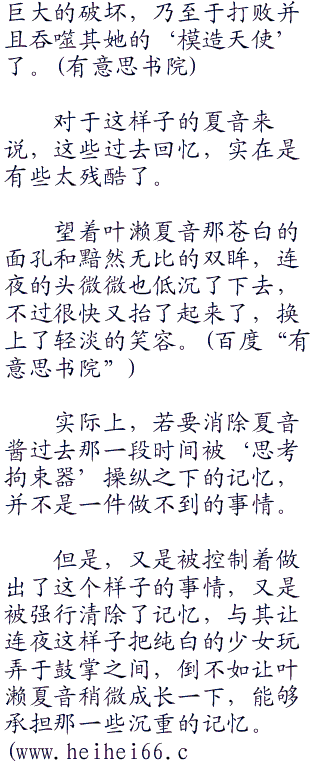 巨大的破坏，乃至于打败并
且吞噬其她的‘模造天使’
了。(有意思书院)
对于这样子的夏音来
说，这些过去回忆，实在是
有些太残酷了。
望着叶濑夏音那苍白的
面孔和黯然无比的双眸，连
夜的头微微也低沉了下去，
不过很快又抬了起来了，换
上了轻淡的笑容。(百度“有
意思书院”)
实际上，若要消除夏音
酱过去那一段时间被‘思考
拘束器’操纵之下的记忆，
并不是一件做不到的事情。
但是，又是被控制着做
出了这个样子的事情，又是
被强行清除了记忆，与其让
连夜这样子把纯白的少女玩
弄于鼓掌之间，倒不如让叶
濑夏音稍微成长一下，能够
承担那一些沉重的记忆。
(www.heihei66.c